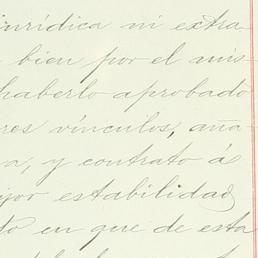 jurídica ni extra
bien por el mis
haberlo aprobado
res vínculos, aña
a, y contrato á
jor estabilidad
to en que de esta